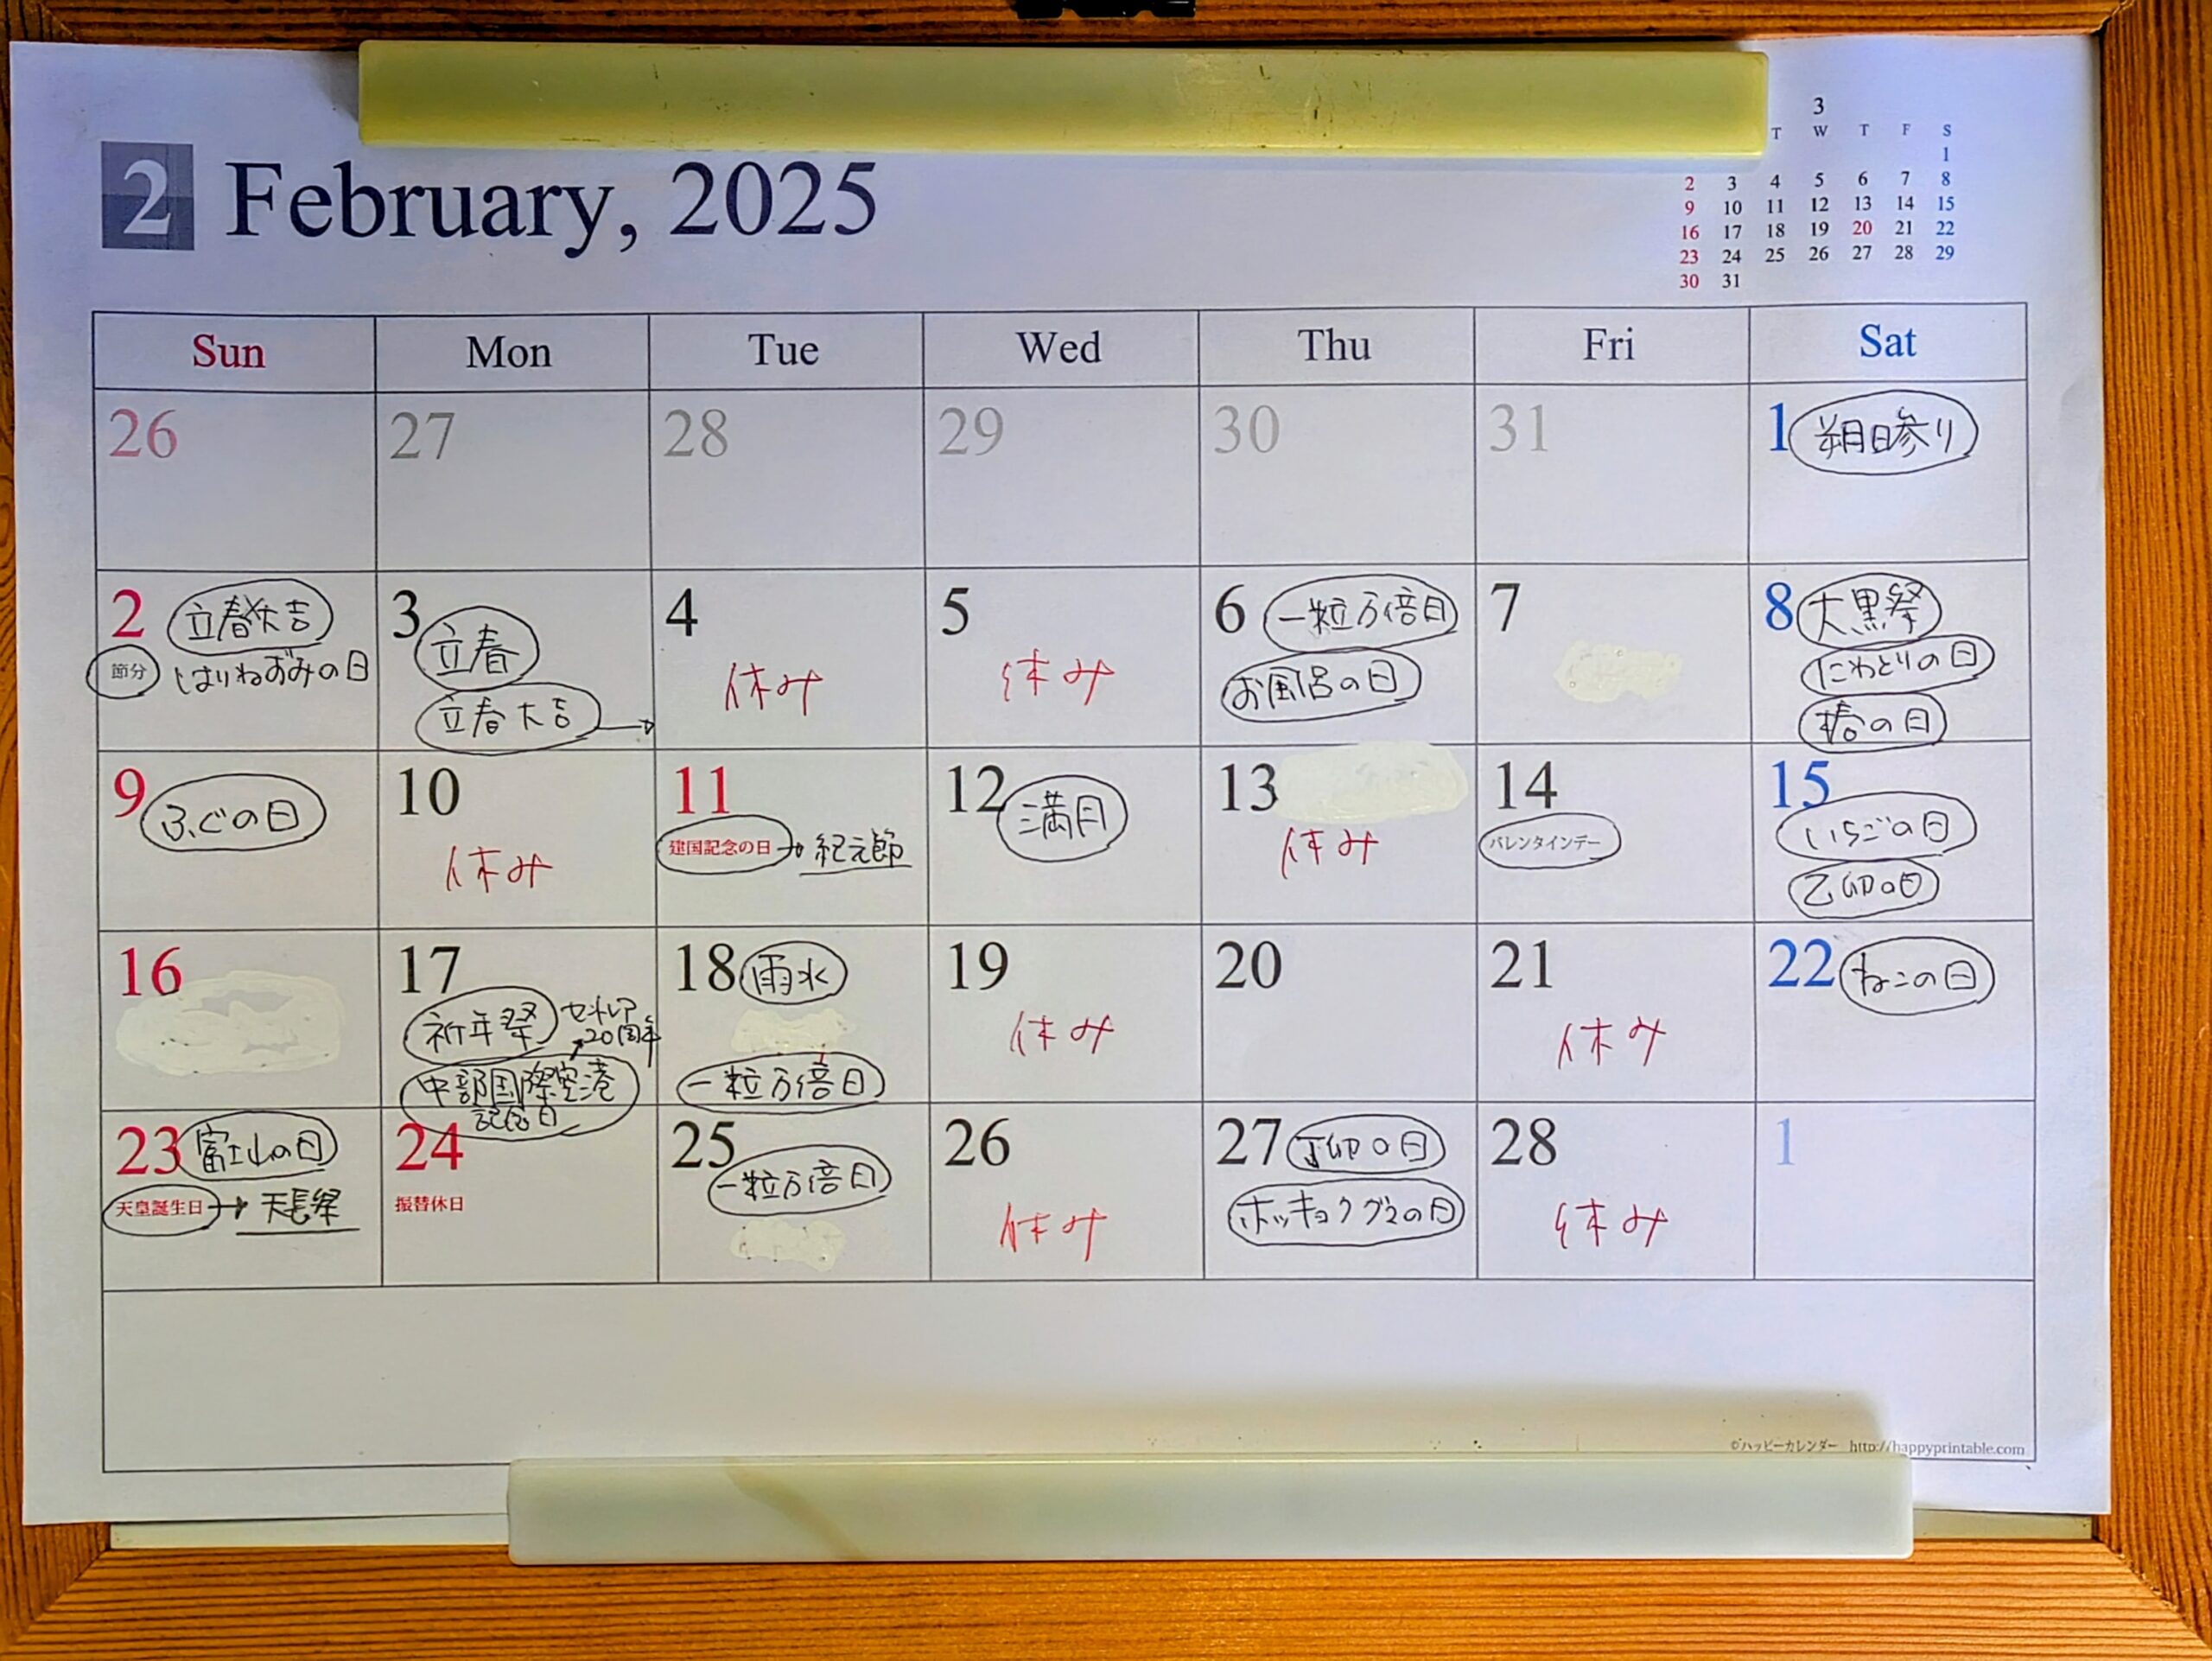 2 February, 2025
3
T W T F S
1
2 3 4 5 6 7 8
9 10 11 12 13 14 15
16 17 18 19 20 21 22
23 24 25 26 27 28 29
30 31
Sun Mon Tue Wed Thu Fri Sat
26 27 28 29 30 31 1 朔日参り
2 立春大吉
節分 はりねずみの日
3 立春
立春大吉 →
4
休み
5
休み
6 一粒万倍日
お風呂の日
7
8 大黒祭
にわとりの日
椿の日
9 ふぐの日
10
休み
11
建国記念の日 → 紀元節
12 満月
13
休み
14
バレンタインデー
15
いちごの日
乙卯の日
16
17
祈年祭
セントレア
20周年
中部国際空港
記念日
18 雨水
一粒万倍日
19
休み
20
21
休み
22 ねこの日
23 富士山の日
天皇誕生日 → 天長祭
24
振替休日
25
一粒万倍日
26
休み
27 丁卯の日
ホッキョクグマの日
28
休み
1
©ハッピーカレンダー http://happyprintable.com